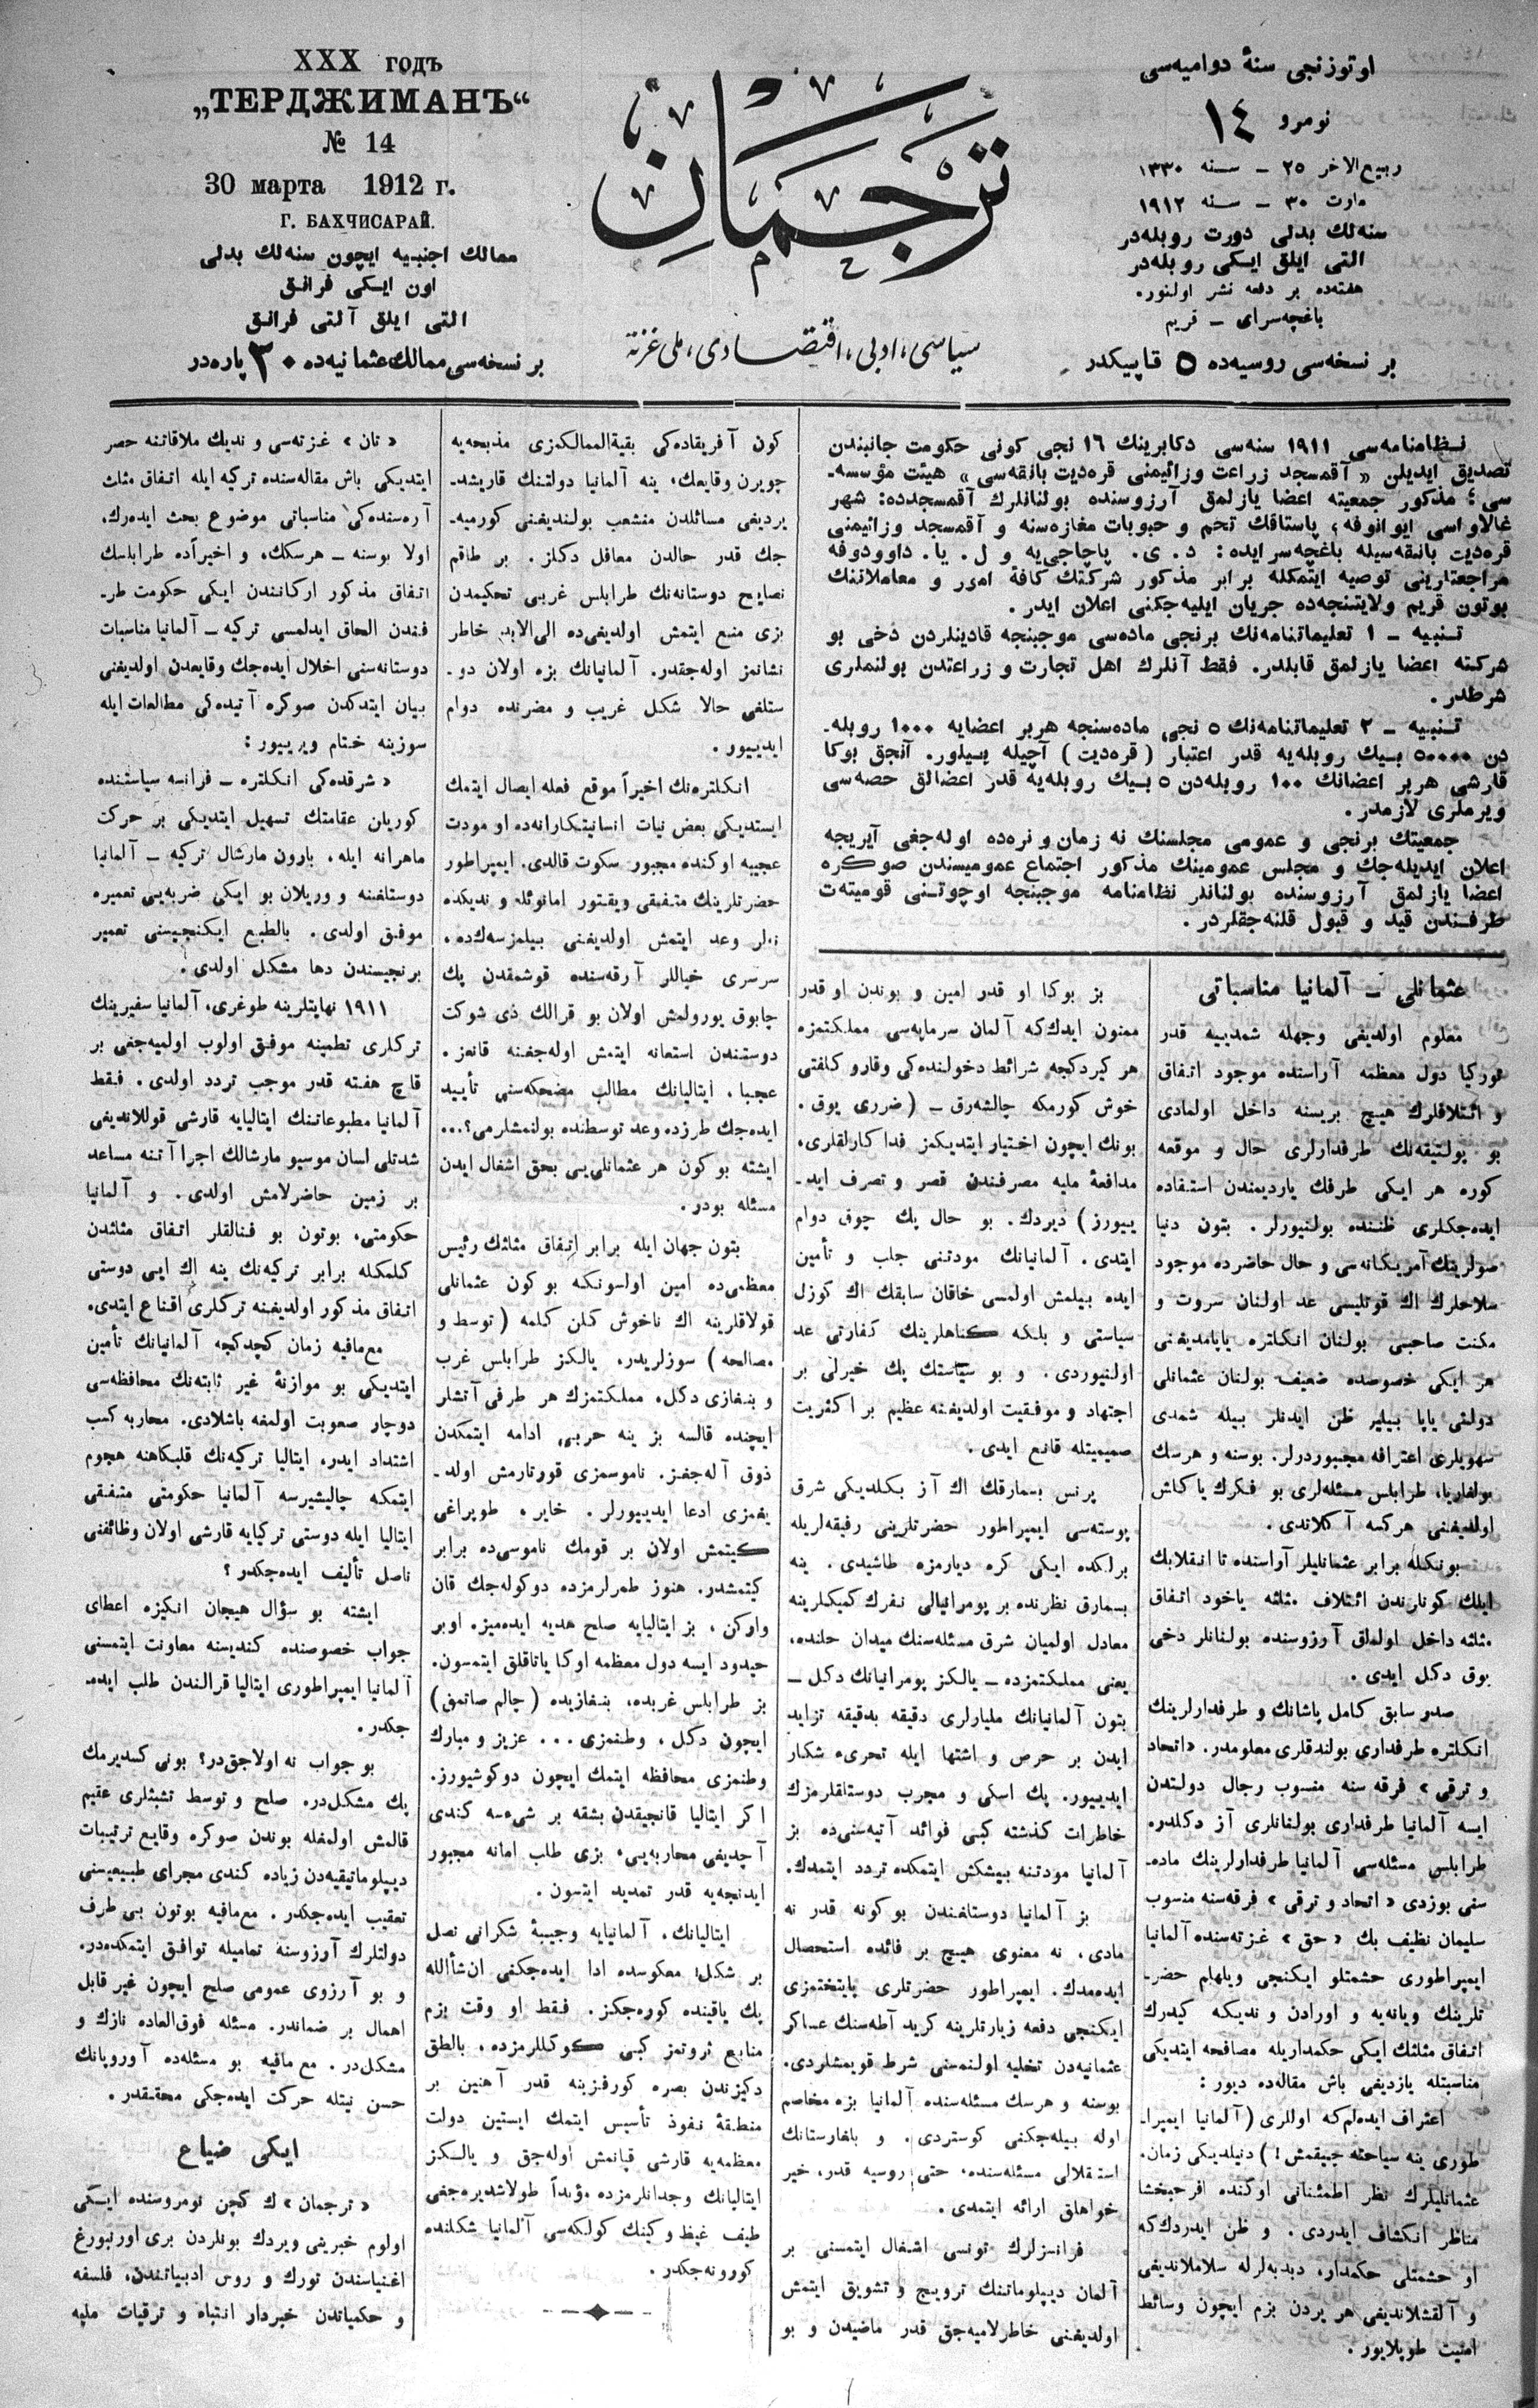 XXX годъ
„ТЕРДЖИМАНЪ“
№ 14
30 марта 1912 г.
Г. БАХЧИСАРАЙ.
ممالك اجنبیه ایچون سنه‌لك بدلی
اون ایكی فرانق
التی ایلق آلتی فرانق
بر نسخه‌سی ممالك عثمانیه‌ده ۳۰ پاره‌در
ترجمان
سیاسی، ادبی، اقتصادی، ملی غزته
اوتوزنجی سنهٔ دوامیه‌سی
نومرو ١٤
ربیع‌الاخر ٢٥ ـ سنه ١٣٣٠
مارت ٣٠ ـ سنه ١٩١٢
سنه‌لك بدلی دورت روبله‌در
التی ایلق ایكی روبله‌در
هفته‌ده بر دفعه نشر اولنور.
باغچه‌سرای ـ قریم
بر نسخه‌سی روسیه‌ده ٥ قاپیكدر
نظامنامه‌سی ١٩١١ سنه‌سی دكابرینك ١٦ نجی كونی حكومت جانبندن
تصدیق ایدیلن « آقمسجد زراعت وزائیمنی قره‌دیت بانقه‌سی » هیئت مؤسسه‌ـ
سی؛ مذكور جمعیته اعضا یازلمق آرزوسنده بولنانلرك آقمسجدده: شهر
غالاواسی ایوانوفه، پاستاقك تخم و حبوبات مغازه‌سنه و آقمسجد وزائیمنی
قره‌دیت بانقه‌سیله باغچه‌سرایده: د. ی. پاچاجی‌یه و ل. یا. داوودوفه
مراجعتلرینی توصیه ایتمكله برابر مذكور شركتك كافهٔ امور و معاملاتنك
بوتون قریم ولایتنجه‌ده جریان ایلیه‌جكنی اعلان ایدر.
تنبیه ـ ١ تعلیماتنامه‌نك برنجی ماده‌سی موجبنجه قادینلردن دخی بو
شركته اعضا یازلمق قابلدر. فقط آنلرك اهل تجارت و زراعتدن بولنملری
شرطدر.
تنبیه ـ ٢ تعلیماتنامه‌نك ٥ نجی ماده‌سنجه هربر اعضایه ١٠٠٠ روبله‌ـ
دن ٥٠٠٠٠ بیك روبله‌یه قدر اعتبار (قره‌دیت) آچیله بیلور. آنجق بوكا
قارشی هربر اعضانك ١٠٠ روبله‌دن ٥ بیك روبله‌یه قدر اعضالق حصه‌سی
ویرملری لازمدر.
جمعیتك برنجی و عمومی مجلسنك نه زمان و نره‌ده اوله‌جغی آیریجه
اعلان ایدیله‌جك و مجلس عمومینك مذكور اجتماع عمومیسندن صوكره
اعضا یازلمق آرزوسنده بولنانلر نظامنامه موجبنجه اوچوتنی قومیته‌ت
طرفندن قید و قبول قلنه‌جقلردر.
عثمانلی ـ آلمانیا مناسباتی
معلوم اولدیغی وجهله شمدییه قدر
توركیا دول معظمه آراسنده موجود اتفاق
و ائتلافلرك هیچ بریسنه داخل اولمادی
بو پولتیقه‌نك طرفدارلری حال و موقعه
كوره هر ایكی طرفك یاردیمندن استفاده
ایده‌جكلری ظننده بولنیورلر. بتون دنیا
صولرینك آمریكانه‌سی و حال حاضرده موجود
سلاحلرك اك قوتلیسی عد اولنان سروت و
مكنت صاحبی بولنان انكلتره یاپامدیغنی
هر ایكی خصوصده ضعیف بولنان عثمانلی
دولتی یاپا بیلیر ظن ایدنلر بیله شمدی
سهولری اعترافه مجبوردرلر. بوسنه و هرسك
بولغاریا، طرابلس مسئله‌لری بو فكرك یاكلش
اولدیغنی هركسه آكلاتدی.
بونكله برابر عثمانلیلر آراسنده تا انقلابك
ایلك كونلرندن ائتلاف مثلثه یاخود اتفاق
مثلثه داخل اولماق آرزوسنده بولنانلر دخی
یوق دكل ایدی.
صدر سابق كامل پاشانك و طرفدارلرینك
انكلتره طرفداری بولندقلری معلومدر. «اتحاد
و ترقی» فرقه سنه منسوب رجال دولتدن
ایسه آلمانیا طرفداری بولنانلری آز دكلدر.
طرابلس مسئله‌سی آلمانیا طرفدارلرینك ماده‌ـ
سنی بوزدی «اتحاد و ترقی» فرقه‌سنه منسوب
سلیمان نظیف بك «حق» غزته‌سنده آلمانیا
ایمپراطوری حشمتلو ایكنجی ویلهلم حضرـ
تلرینك ویانه‌یه و اورادن وندیكه كیدرك
اتفاق مثلثك ایكی حكمداریله مصافحه ایتدیكی
مناسبتله یازدیغی باش مقاله‌ده دیور:
اعتراف ایده‌لم‌كه اوللری (آلمانیا ایمپراـ
طوری ینه سیاحته چیقمش!) دنیلدیكی زمان،
عثمانلیلرك نظر اطمئنانی اوكنده افرحبخشا
مناظر انكشاف ایدردی. و ظن ایدردك‌كه
او حشمتلی حكمدار، دبدبه‌لرله سلاملاندیغی
و آلقشلاندیغی هر یردن بزم ایچون وسائط
امنیت طوپلایور.
بز بوكا او قدر امین و بوندن او قدر
ممنون ایدك‌كه آلمان سرمایه‌سی مملكتمزه
هر كیردكجه شرائط دخولنده‌كی وقارو كلفتی
خوش كورمكه چالشه‌رق ـ (ضرری یوق.
بونك ایچون اختیار ایتدیكمز فداكارلقلری،
مدافعهٔ ملیه مصرفندن قصر و تصرف ایدـ
ییورز) دیردك. بو حال پك چوق دوام
ایتدی. آلمانیانك مودتنی جلب و تأمین
ایده بیلمش اولمسی خاقان سابقك اك كوزل
سیاستی و بلكه كناهلرینك كفارتی عد
اولنیوردی. و بو سیاستك پك خیرلی بر
اجتهاد و موفقیت اولدیغنه عظیم بر اكثریت
صمیمیتله قانع ایدی.
پرنس بسمارقك اك آز بكلدیكی شرق
پوسته‌سی ایمپراطور حضرتلرینی رفیقه‌لریله
برلكده ایكی كره دیارمزه طاشیدی. ینه
بسمارق نظرنده بر پومرانیالی نفرك كمیكلرینه
معادل اولمیان شرق مسئله‌سنك میدان حلنده،
یعنی مملكتمزده ـ یالكز پومرانیانك دكل ـ
بتون آلمانیانك ملیارلری دقیقه بدقیقه تزاید
ایدن بر حرص و اشتها ایله تحریء شكار
ایدییور. پك اسكی و مجرب دوستلقلرمزك
خاطرات كذشته كبی فوائد آتیه‌سنی‌ده بز
آلمانیا مودتنه بیشكش ایتمكده تردد ایتمدك.
بز آلمانیا دوستلغندن بو كونه قدر نه
مادی، نه معنوی هیچ بر فائده استحصال
ایده‌مدك. ایمپراطور حضرتلری پایتختمزی
ایكنجی دفعه زیارتلرینه كرید آطه‌سنك عساكر
عثمانیه‌دن تخلیه اولنمسنی شرط قویمشلردی.
بوسنه و هرسك مسئله‌سنده آلمانیا بزه مخاصم
اوله بیله‌جكنی كوستردی. و بلغارستانك
استقلالی مسئله‌سنده، حتی روسیه قدر، خیر
خواهلق ارائه ایتمدی.
فرانسزلرك تونسی اشغال ایتمسنی بر
آلمان دیپلوماتنك ترویج و تشویق ایتمش
اولدیغنی خاطرلامیه‌جق قدر ماضیدن و بو
كون آفریقاده‌كی بقیة‌الممالكمزی مذبحه‌یه
چویرن وقایعك، ینه آلمانیا دولتنك قاریشدـ
یردیغی مسائلدن منشعب بولندیغنی كورمیه‌ـ
جك قدر حالدن معافل دكلز. بر طاقم
نصایح دوستانه‌نك طرابلس غربی تحكیمدن
بزی منع ایتمش اولدیغی‌ده الی‌الابد خاطر
نشانمز اوله‌جقدر. آلمانیانك بزه اولان دوـ
ستلغی حالا شكل غریب و مضرنده دوام
ایدییور.
انكلتره‌نك اخیراً موقع فعله ایصال ایتمك
ایستدیكی بعض نیات انسانیتكارانه‌ده او مودت
عجیبه اوكنده مجبور سكوت قالدی. ایمپراطور
حضرتلرینك متفقی ویقتور امانوئله وندیكده
نه‌لر وعد ایتمش اولدیغنی بیلمزسه‌ك‌ده،
سرسری خیاللر آرقه‌سنده قوشمقدن پك
چابوق یورولمش اولان بو قرالك ذی شوكت
دوستندن استعانه ایتمش اوله‌جغنه قانعز.
عجبا، ایتالیانك مطالب مضحكه‌سنی تأیید
ایده‌جك طرزده وعد توسطنده بولنمشلرمی؟...
ایشته بو كون هر عثمانلی‌یی بحق اشغال ایدن
مسئله بودر.
بتون جهان ایله برابر اتفاق مثلثك رئیس
معظمی‌ده امین اولسونكه بو كون عثمانلی
قولاقلرینه اك ناخوش كلن كلمه (توسط و
مصالحه) سوزلریدر. یالكز طرابلس غرب
و بنغازی دكل، مملكتمزك هر طرفی آتشلر
ایچنده قالسه بز ینه حربی ادامه ایتمكدن
ذوق آله‌جغز. ناموسمزی قورتارمش اولدـ
یغمزی ادعا ایدییورلر. خایر، طوپراغی
كیتمش اولان بر قومك ناموسی‌ده برابر
كیتمشدر. هنوز طمرلرمزده دوكوله‌جك قان
واركن، بز ایتالیایه صلح هدیه ایده‌میز. اوبر
حیدود ایسه دول معظمه اوكا یاتاقلق ایتمسون.
بز طرابلس غربده، بنغازیده (چالم صاتمق)
ایچون دكل، وطنمزی... عزیز و مبارك
وطنمزی محافظه ایتمك ایچون دوكوشیورز.
اكر ایتالیا قانجیقدن بشقه بر شیءسه كندی
آچدیغی محاربه‌یی، بزی طلب امانه مجبور
ایدنجه‌یه قدر تمدید ایتسون.
ایتالیانك، آلمانیایه وجیبهٔ شكرانی نصل
بر شكل معكوسده ادا ایده‌جكنی ان‌شاألله
پك یاقینده كوره‌جكز. فقط او وقت بزم
منابع ثروتمز كبی كوكللرمزده، بالطق
دكیزندن بصره كورفزینه قدر آهنین بر
منطقهٔ نفوذ تأسیس ایتمك ایستین دولت
معظمه‌یه قارشی قپانمش اوله‌جق و یالكز
ایتالیانك وجدانلرمزده مؤبداً طولاشدیره‌جغی
طیف غیظ و كینك كولكه‌سی آلمانیا شكلنده
كورونه‌جكدر.
«تان» غزته‌سی وندیك ملاقاتنه حصر
ایتدیكی باش مقاله‌سنده تركیه ایله اتفاق مثلث
آره‌سنده‌كی مناسباتی موضوع بحث ایده‌رك،
اولا بوسنه ـ هرسكك، و اخیراًده طرابلسك
اتفاق مذكور اركانندن ایكی حكومت طرـ
فندن الحاق ایدلمسی تركیه ـ آلمانیا مناسبات
دوستانه‌سنی اخلال ایده‌جك وقایعدن اولدیغنی
بیان ایتدكدن صوكره آتیده‌كی مطالعات ایله
سوزینه ختام ویرییور:
«شرقده‌كی انكلتره ـ فرانسه سیاستنده
كوریلان عقامتك تسهیل ایتدیكی بر حركت
ماهرانه ایله، بارون مارشال تركیه ـ آلمانیا
دوستلغنه و وریلان بو ایكی ضربه‌یی تعمیره
موفق اولدی. بالطبع ایكنجیسنی تعمیر
برنجیسندن دها مشكل اولدی.
١٩١١ نهایتلرینه طوغری، آلمانیا سفیرینك
تركلری تطمینه موفق اولوب اولمیه‌جغی بر
قاچ هفته قدر موجب تردد اولدی. فقط
آلمانیا مطبوعاتنك ایتالیایه قارشی قوللاندیغی
شدتلی لسان موسیو مارشالك اجرا آتنه مساعد
بر زمین حاضرلامش اولدی. و آلمانیا
حكومتی، بوتون بو فنالقلر اتفاق مثلثدن
كلمكله برابر تركیه‌نك ینه اك ایی دوستی
اتفاق مذكور اولدیغنه تركلری اقناع ایتدی.
مع‌مافیه زمان كچدكجه آلمانیانك تأمین
ایتدیكی بو موازنهٔ غیر ثابته‌نك محافظه‌سی
دوچار صعوبت اولمغه باشلادی. محاربه كسب
اشتداد ایدر، ایتالیا تركیه‌نك قلبكاهنه هجوم
ایتمكه چالیشیرسه آلمانیا حكومتی متفقی
ایتالیا ایله دوستی تركیایه قارشی اولان وظائفنی
ناصل تألیف ایده‌جكدر؟
ایشته بو سؤال هیجان انكیزه اعطای
جواب خصوصنده كندیسنه معاونت ایتمسنی
آلمانیا ایمپراطوری ایتالیا قرالندن طلب ایده‌ـ
جكدر.
بو جواب نه اولاجق‌در؟ بونی كسدیرمك
پك مشكل‌در. صلح و توسط تشبثلری عقیم
قالمش اولمغله بوندن صوكره وقایع ترتیبات
دیپلوماتیقیه‌دن زیاده كندی مجرای طبیعیسنی
تعقیب ایده‌جكدر. مع‌مافیه بوتون بی طرف
دولتلرك آرزوسنه تمامیله توافق ایتمكده‌در.
و بو آرزوی عمومی صلح ایچون غیر قابل
اهمال بر ضماندر. مسئله فوق‌العاده نازك و
مشكل‌در. مع مافیه بو مسئله‌ده آوروپانك
حسن نیتله حركت ایده‌جكی محققدر.
ایكی ضیاع
«ترجمان» ك كچن نومروسنده ایكی
اولوم خبرینی ویردك بونلردن بری اورنبورغ
اغنیاسندن تورك و روس ادبیاتندن، فلسفه
و حكمیاتدن خبردار انتباه و ترقیات ملیه